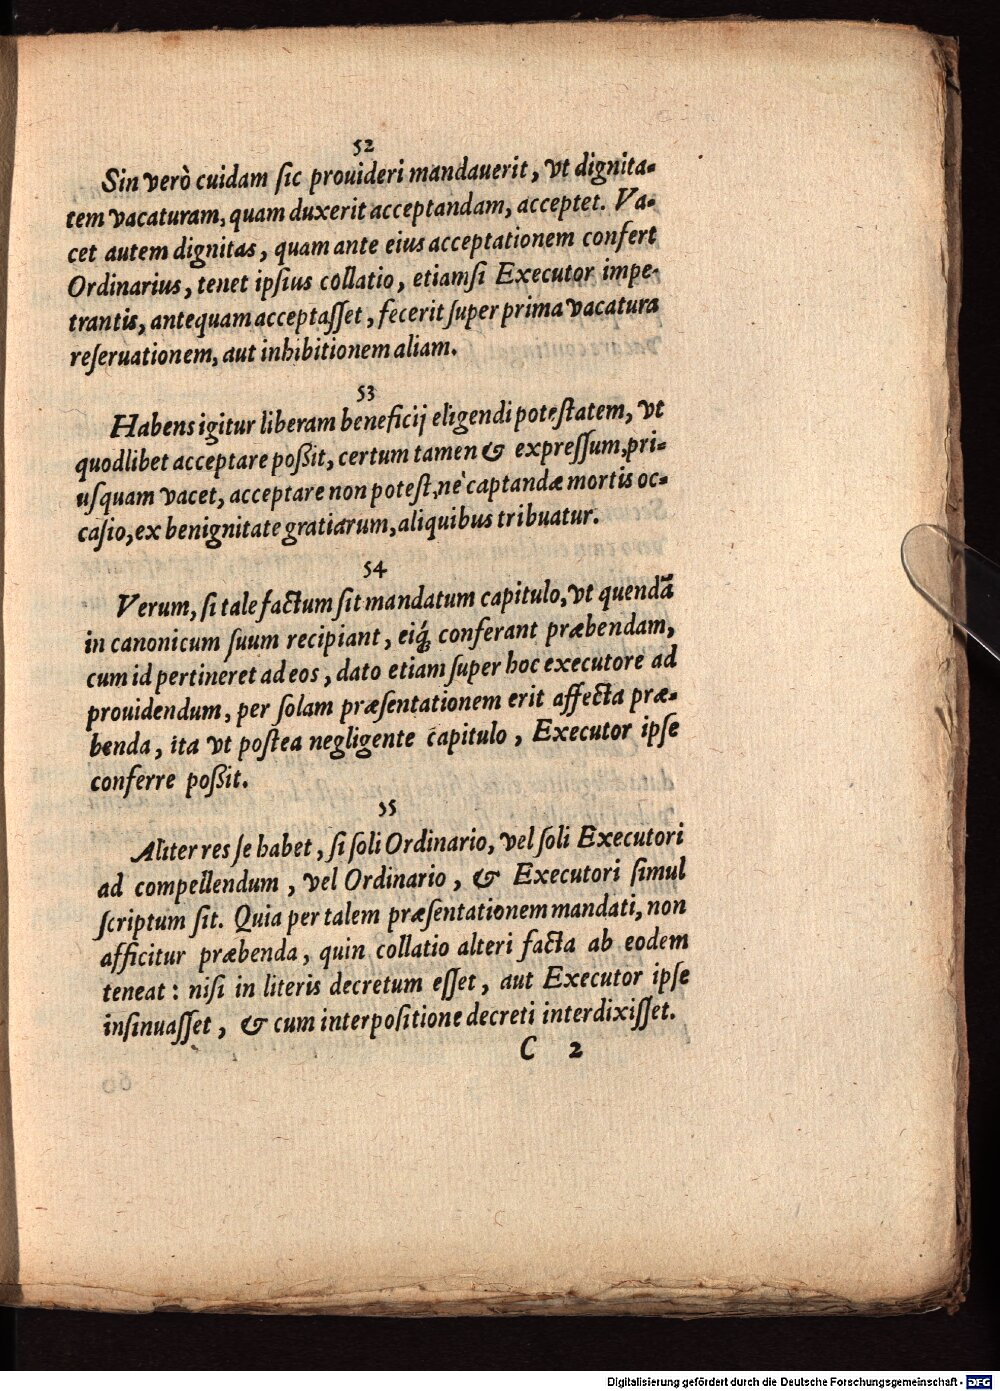 52
Sin verò cuidam ſic prouideri mandauerit, vt dignita-
tem vacaturam, quam duxerit acceptandam, acceptet. Va-
cet autem dignitas, quam ante eius acceptationem confert
Ordinarius, tenet ipſius collatio, etiamſi Executor impe-
trantis, antequam acceptaſſet, fecerit ſuper prima vacatura
reſeruationem, aut inhibitionem aliam.
53
Habens igitur liberam beneficij eligendi poteſtatem, vt
quodlibet acceptare poßit, certum tamen & expreſſum, pri-
uſquam vacet, acceptare non poteſt, nè captandæ mortis oc-
caſio, ex benignitate gratiarum, aliquibus tribuatur.
54
Verum, ſi tale factum ſit mandatum capitulo, vt quendã
in canonicum ſuum recipiant, eiq́; conferant præbendam,
cum id pertineret ad eos, dato etiam ſuper hoc executore ad
prouidendum, per ſolam præſentationem erit affecta præ-
benda, ita vt poſtea negligente capitulo, Executor ipſe
conferre poßit.
55
Aliter res ſe habet, ſi ſoli Ordinario, vel ſoli Executori
ad compellendum, vel Ordinario, & Executori ſimul
ſcriptum ſit. Quia per talem præſentationem mandati, non
afficitur præbenda, quin collatio alteri facta ab eodem
teneat: niſi in literis decretum eſſet, aut Executor ipſe
inſinuaſſet, & cum interpoſitione decreti interdixiſſet.
C 2
Digitalisierung gefördert durch die Deutsche Forschungsgemeinschaft - DFG